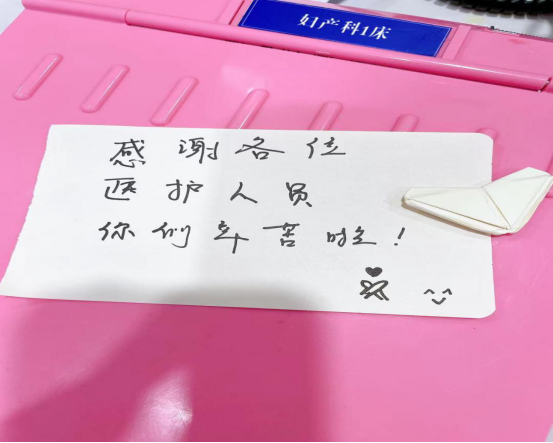 妇产科1床
感谢各位
医护人员
你们辛苦啦！